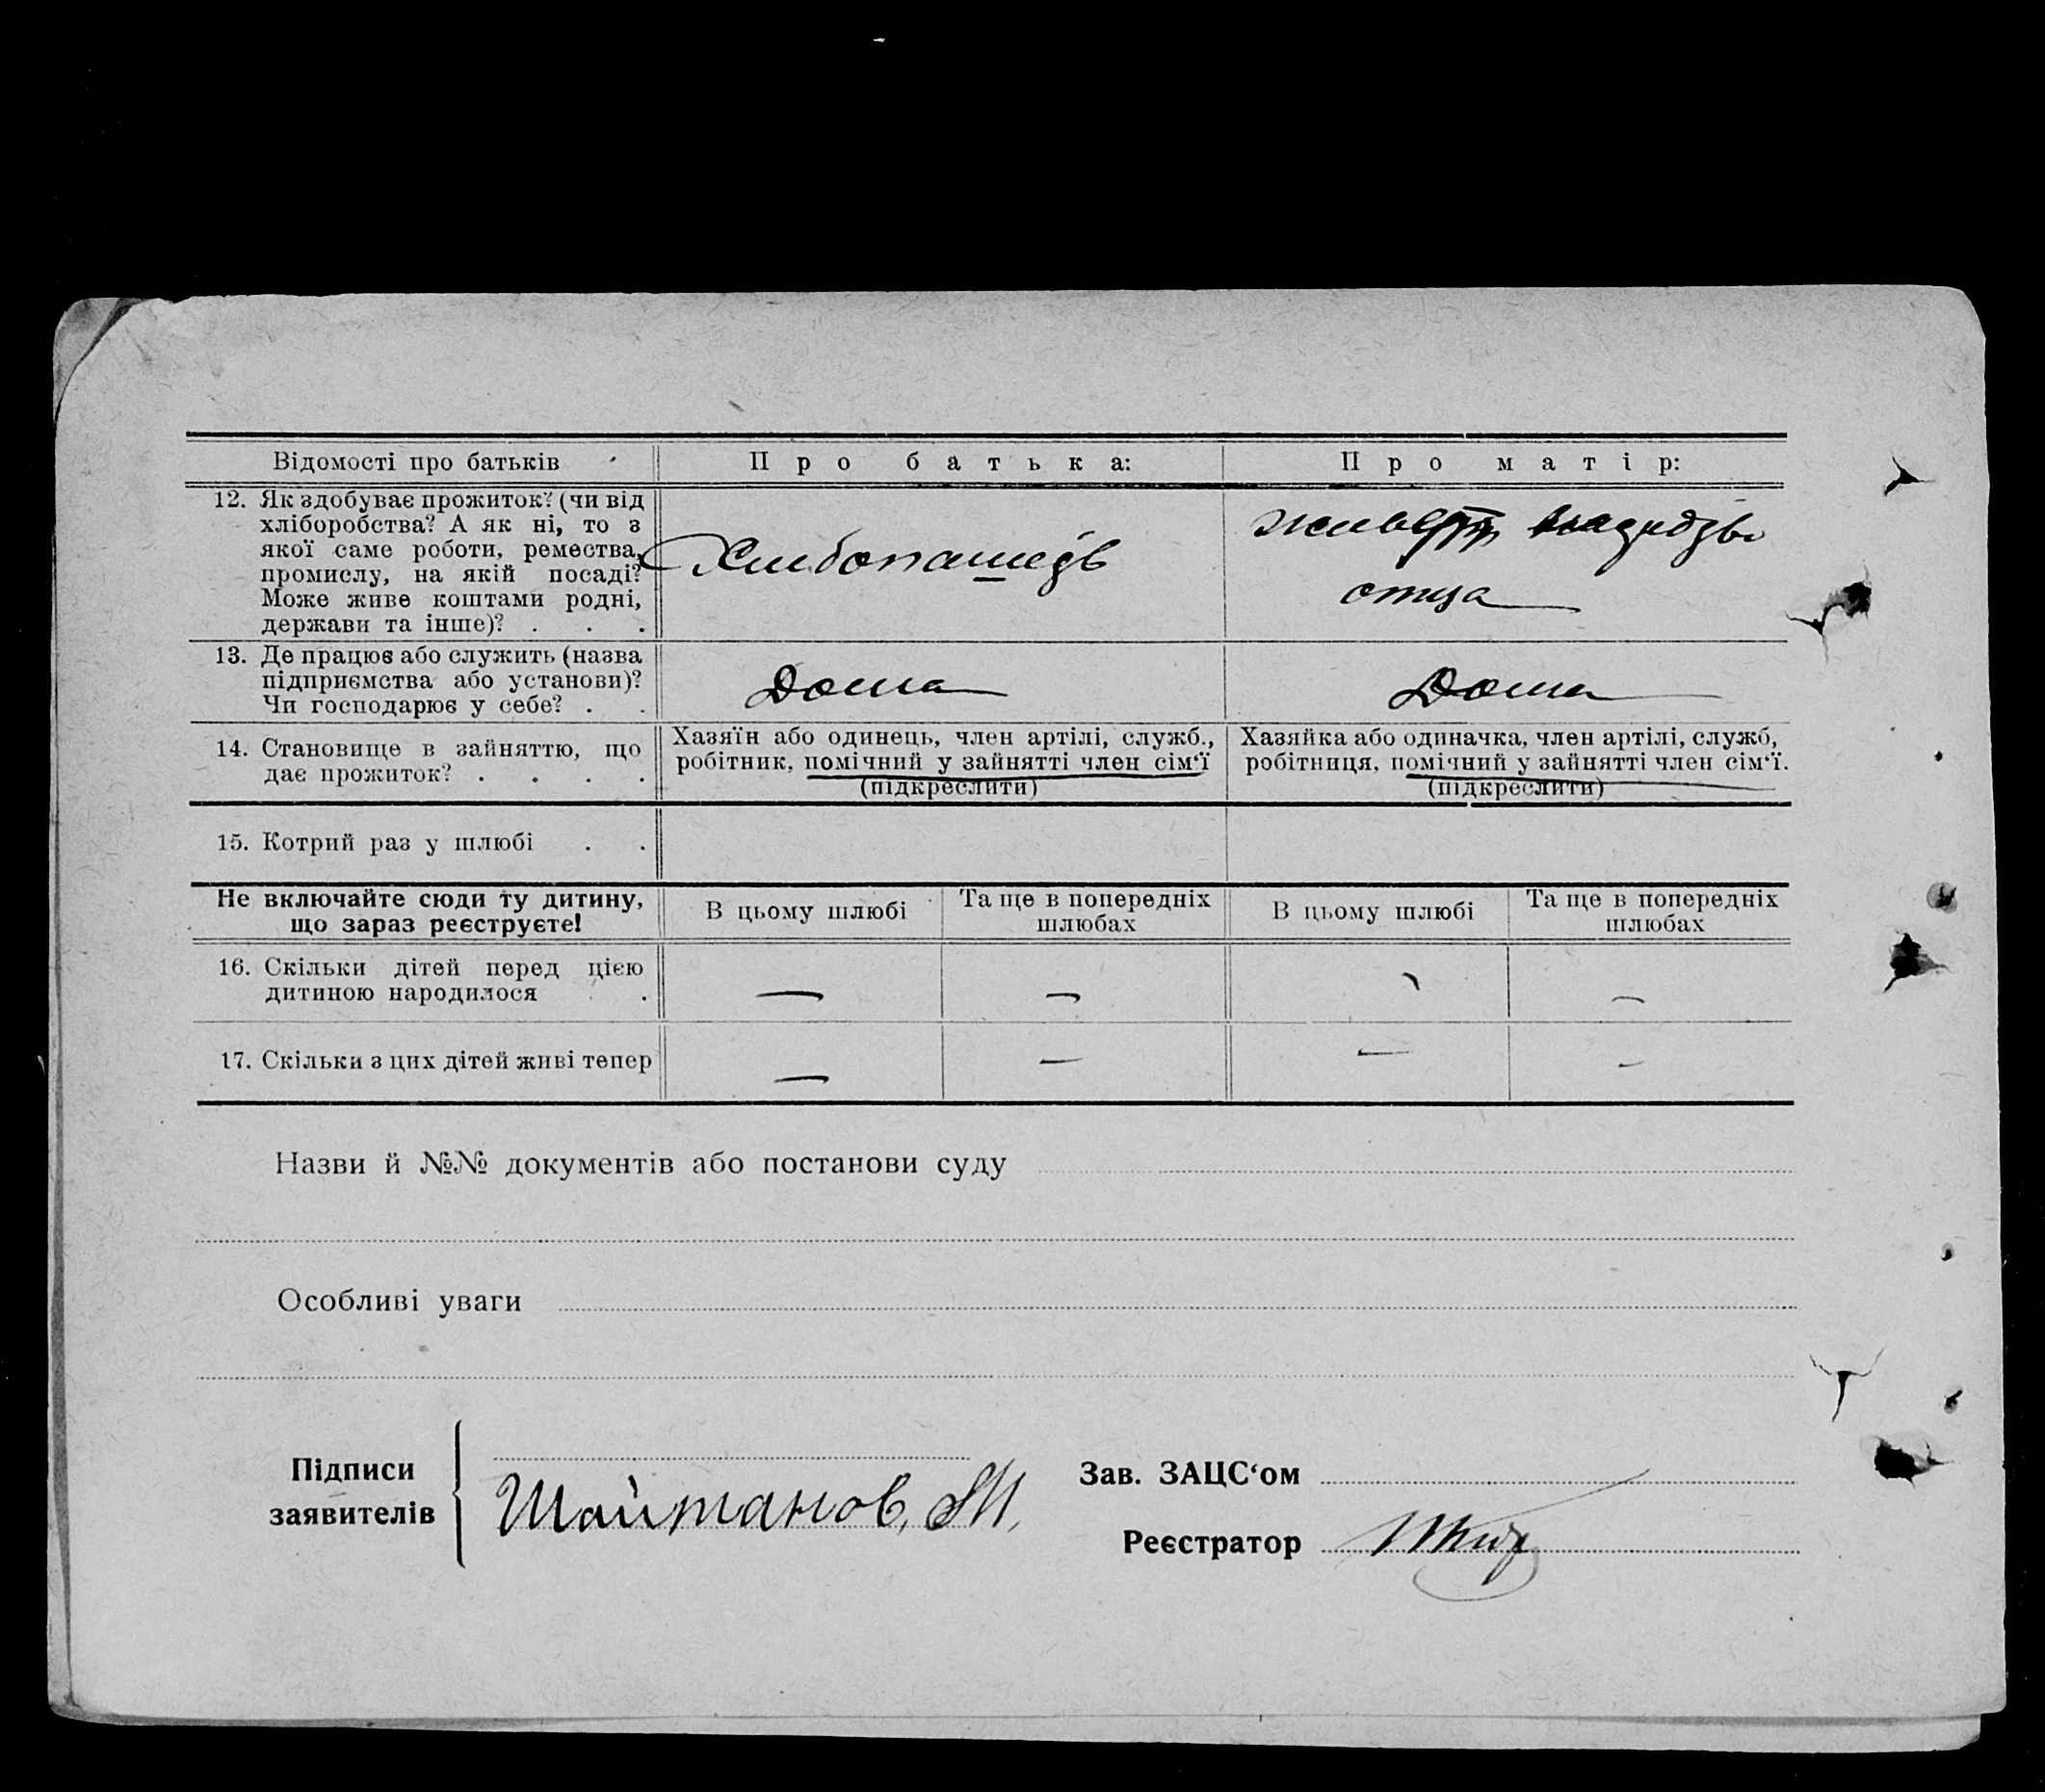 Відомості про батьків
Про батька:
Про матір:
12. Як здобуває прожиток? (чи від
хліборобства? А як ні, то з
якої саме роботи, ремества,
промислу, на якій посаді?
Може живе коштами родні,
держави та інше)? . . .
живет
отца
13. Де працює або служить (назва
підприємства або установи)?
Чи господарює у себе? . .
Дома
Дома
14. Становище в зайняттю, що
дає прожиток? . . . .
Хазяїн або одинець, член артілі, служб.,
робітник, помічний у зайнятті член сім‘ї
(підкреслити)
Хазяйка або одиначка, член артілі, служб,
робітниця, помічний у зайнятті член сім‘ї.
(підкреслити)
15. Котрий раз у шлюбі . .
Не включайте сюди ту дитину,
що зараз реєструєте!
В цьому шлюбі
Та ще в попередніх
шлюбах
В цьому шлюбі
Та ще в попередніх
шлюбах
16. Скільки дітей перед цією
дитиною народилося .
— — —
17. Скільки з цих дітей живі тепер
— — — —
Назви й №№ документів або постанови суду
Особливі уваги
Підписи
заявителів
Шайтанов, М.
Зав. ЗАЦС‘ом
Реєстратор